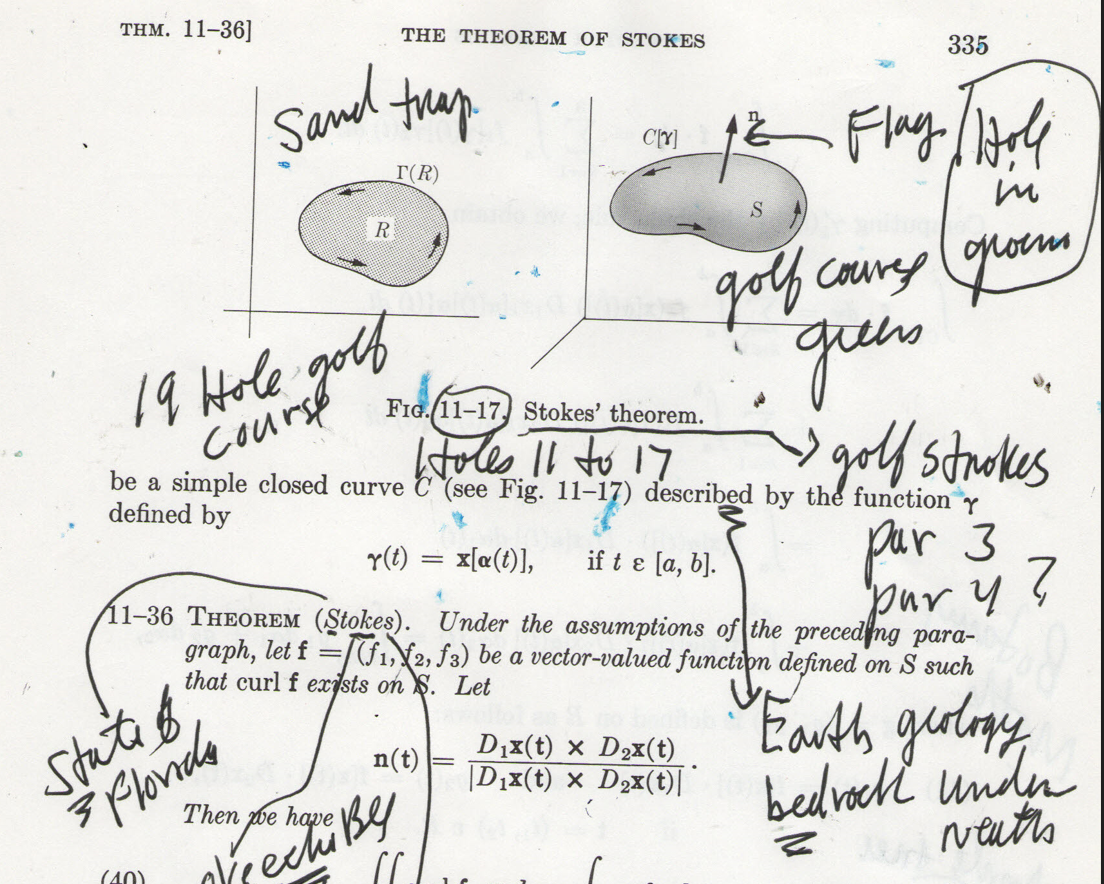 THM. 11–36]
THE THEOREM OF STOKES
335
Sand trap
Γ(R)
R
C[γ]
n
S
Flag
Hole
in
golf course
greens
19 Hole golf
course
FIG. 11–17. Stokes' theorem.
Holes 11 to 17
golf strokes
be a simple closed curve C (see Fig. 11–17) described by the function γ
defined by
par 3
γ(t) = x[α(t)], if t ε [a, b].
par 4 ?
11–36 THEOREM (Stokes). Under the assumptions of the preceding para-
graph, let f = (f₁, f₂, f₃) be a vector-valued function defined on S such
that curl f exists on S. Let
Earth geology
State of
Florida
n(t) = D₁x(t) × D₂x(t) / |D₁x(t) × D₂x(t)| .
bedrock under
neath
Then we have
(40)